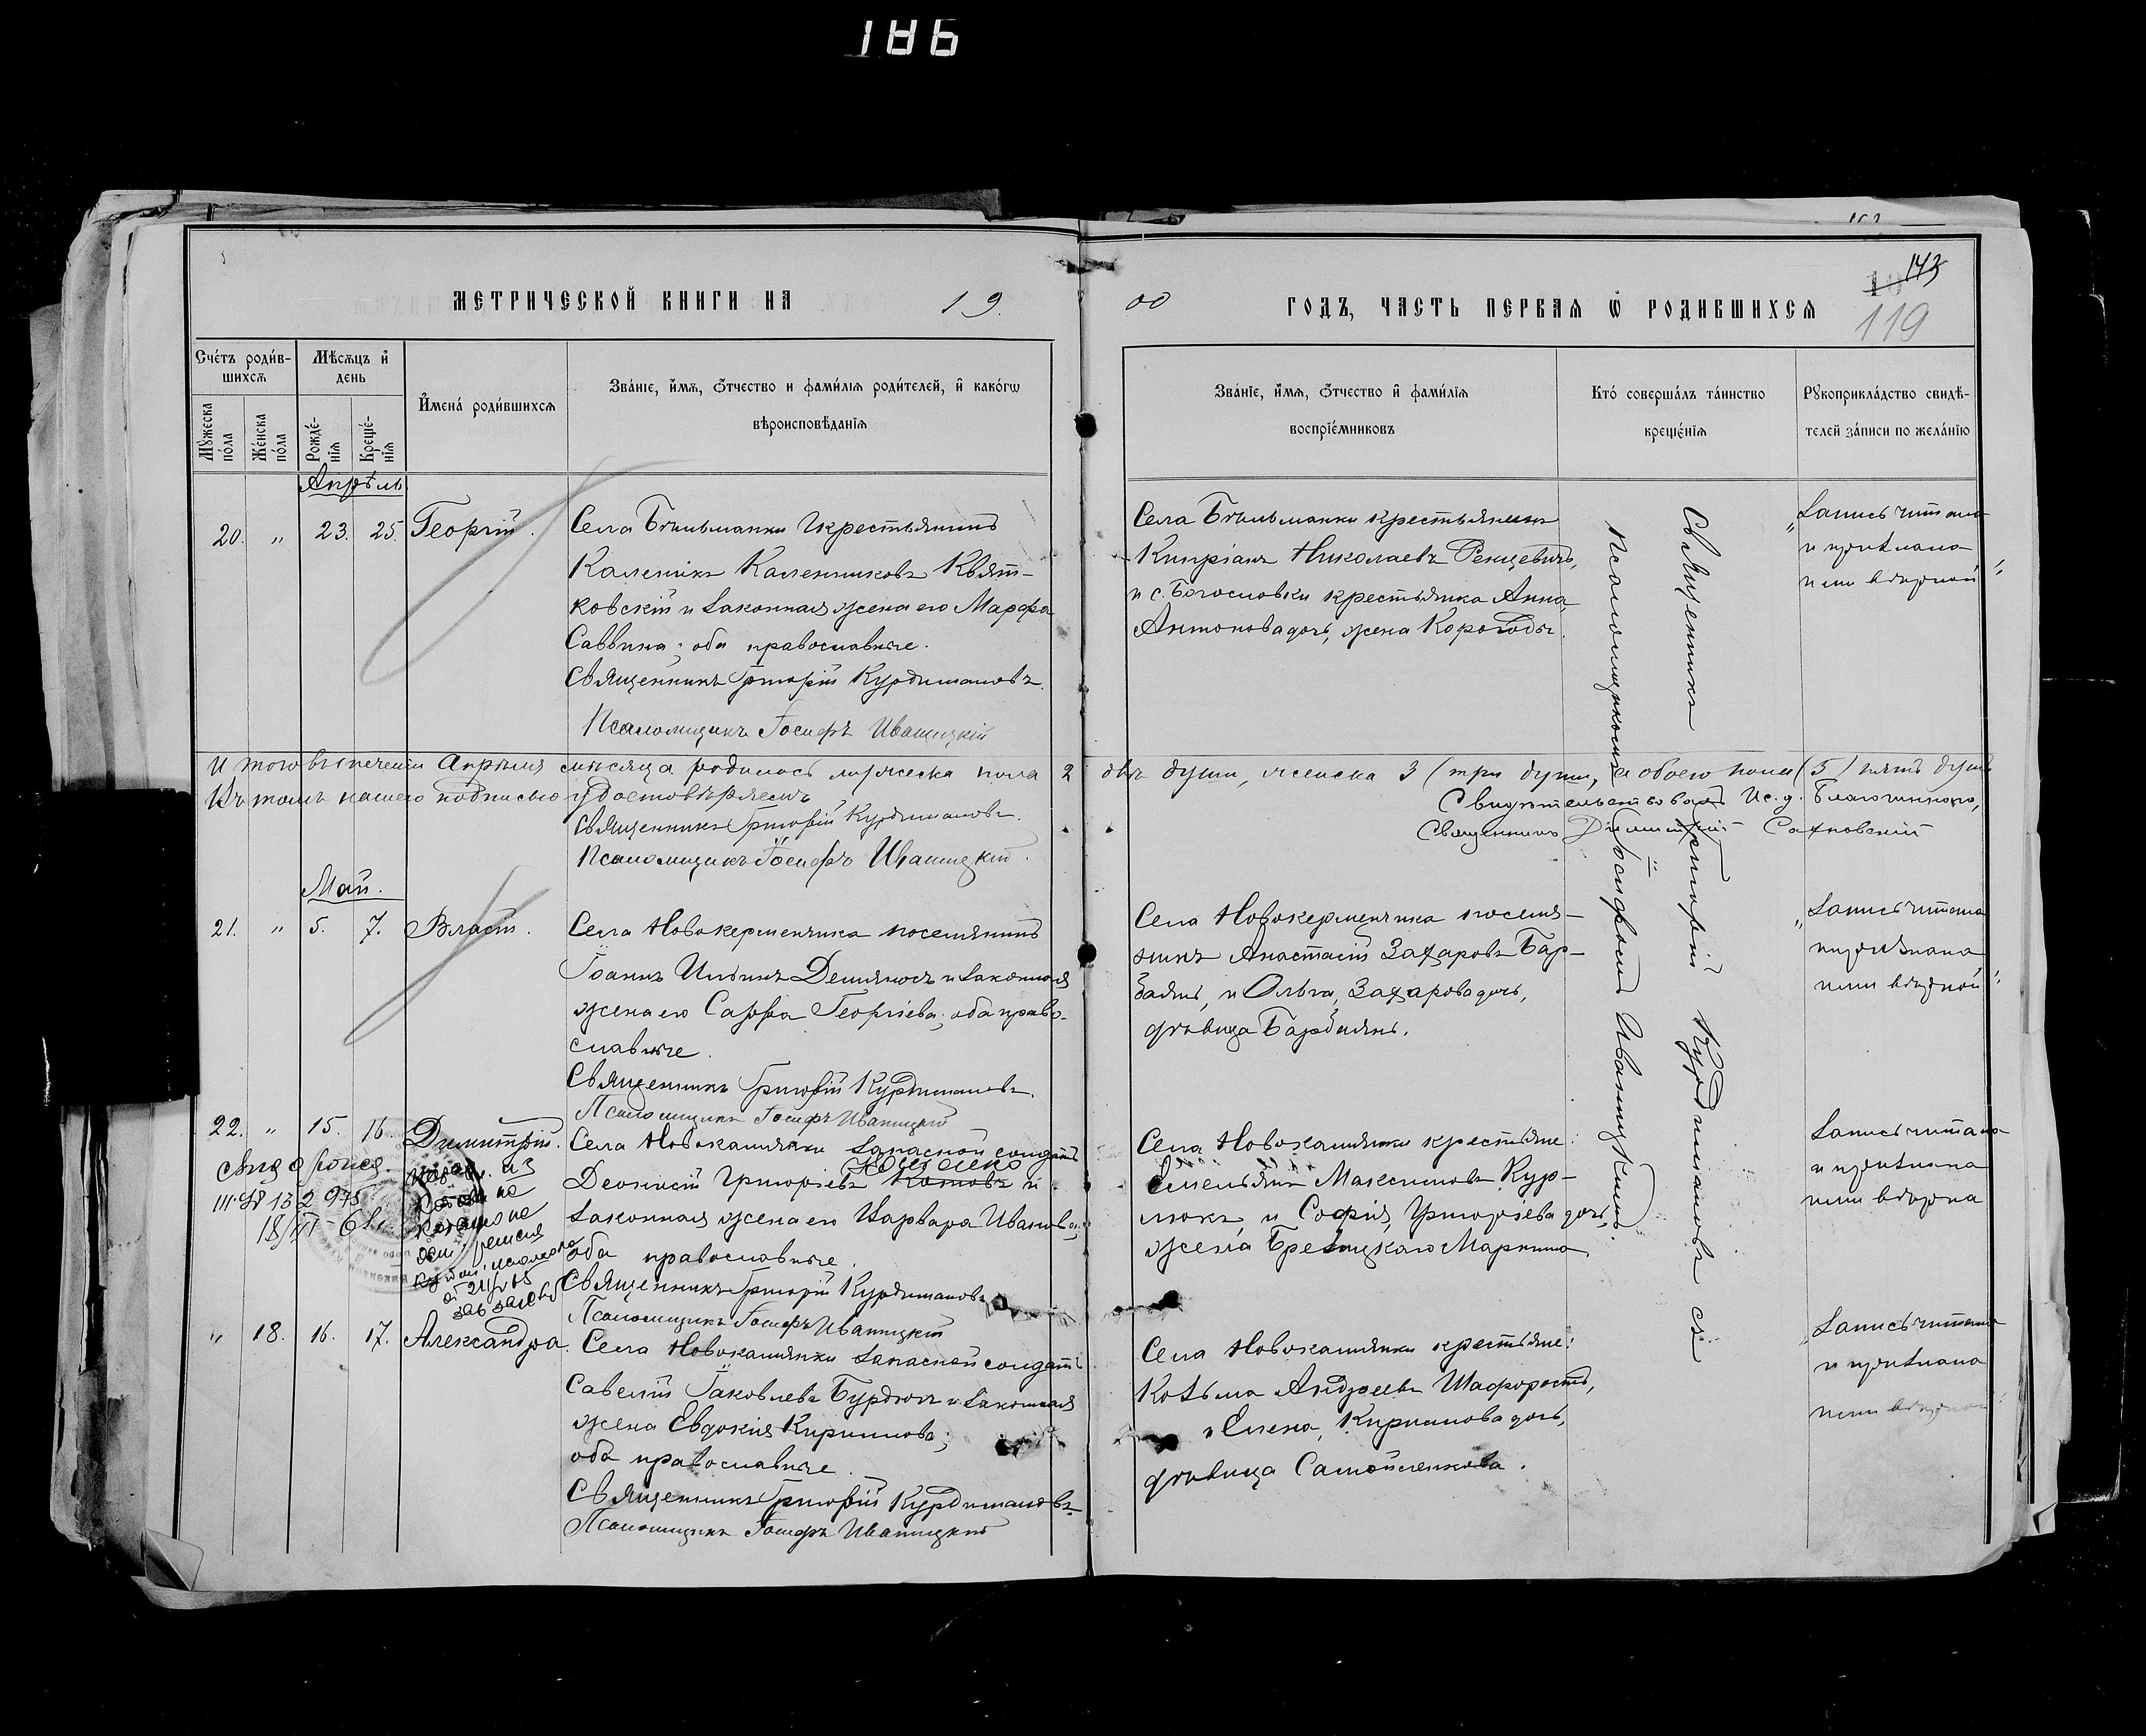 186
143
119
МЕТРИЧЕСКОЙ КНИГИ НА 19
00 ГОДЪ, ЧАСТЬ ПЕРВАЯ Ѿ РОДИВШИХСЯ
Сче́тъ роди́в-
шихсѧ
Мѣ́сѧцъ и҆
день
Мꙋ́жеска по́ла
Же́нска по́ла
Рожде́-
нїѧ
Креще́-
нїѧ
И҆мена́ роди́вшихсѧ
Зва́нїе, и҆́мѧ, ѻ҆́тчество и фами́лїѧ роди́телей, и҆ како́гѡ
вѣроисповѣ́данїѧ
Зва́нїе, и҆́мѧ, ѻ҆́тчество и҆ фами́лїѧ
воспрїе́мниковъ
Кто́ соверша́лъ та́инство
креще́нїѧ
Рꙋкоприкла́дство свидѣ́-
телей за́писи по жела́нїю
Апрѣль
20. " 23. 25. Георгій.
Села Бѣльманки крестьянинъ
Каленикъ Калениковъ Квят-
ковскій и законная жена его Марфа
Саввина; оба православные.
Священникъ Григорій Курдиманов.
Псаломщикъ Іосифъ Иваницкій
Села Бѣльманки крестьянинъ
Кипріанъ Николаевъ Ренцевичъ,
и с. Богословки крестьянка Анна
Антонова дочь, жена Короводы.
"Запись читана
и признана
нами вѣрной"
И того въ теченіи Апрѣля мѣсяца родилось мужеска пола 2 двѣ души, женска 3 (три души, а обоего пола (5) пять душъ
Въ томъ нашею подписью удостовѣряемъ
Священникъ Григорій Курдиманов.
Псаломщикъ Іосифъ Иваницкій.
Свидѣтельствовалъ Ис. д. Благочиннаго,
Священникъ Димитрій Сахновскій
Май.
21. " 5. 7. Власій.
Села Новокерменчика поселянинъ
Іоаннъ Ильинъ Демяносъ и законная
жена его Сарра Георгіева; оба право-
славные.
Священникъ Григорій Курдиманов.
Псаломщикъ Іосифъ Иваницкій
Села Новокерменчика поселя-
нинъ Анастасій Захаровъ Бар-
баянъ, и Ольга, Захарова дочь,
дѣвица Барбаянъ.
"Запись читана
и признана
нами вѣрной"
22. " 15. 16. Димитрій.
Села Новокаминки запасной солдатъ
Коцюпено
Деонисій Григорьевъ Котовъ и
законная жена его Варвара Иванова;
оба православные.
Священникъ Григорій Курдиманов
Псаломщикъ Іосифъ Иваницкій
Села Новокаминки крестьяне:
Емельянъ Максимовъ Кур-
люкъ, и Софія, Григоріева дочь,
жена Брезицкаго Маркина
Запись читана
и признана
нами вѣрна
" 18. 16. 17. Александра.
Села Новокаминки запасной солдатъ
Савелій Іаковлевъ Бурдюкъ и законная
жена Евдокія Кириллова;
оба православные.
Священникъ Григорій Курдимановъ
Псаломщикъ Іосифъ Иваницкій
Села Новокаминки крестьяне:
Козьма Андреевъ Шафоростъ,
и Елена, Кириллова дочь,
дѣвица Самойленкова.
Запись читана
и признана
нами вѣрной
Священникъ Григорій Курдимановъ съ
псаломщикомъ Іосифомъ Иваницкимъ.